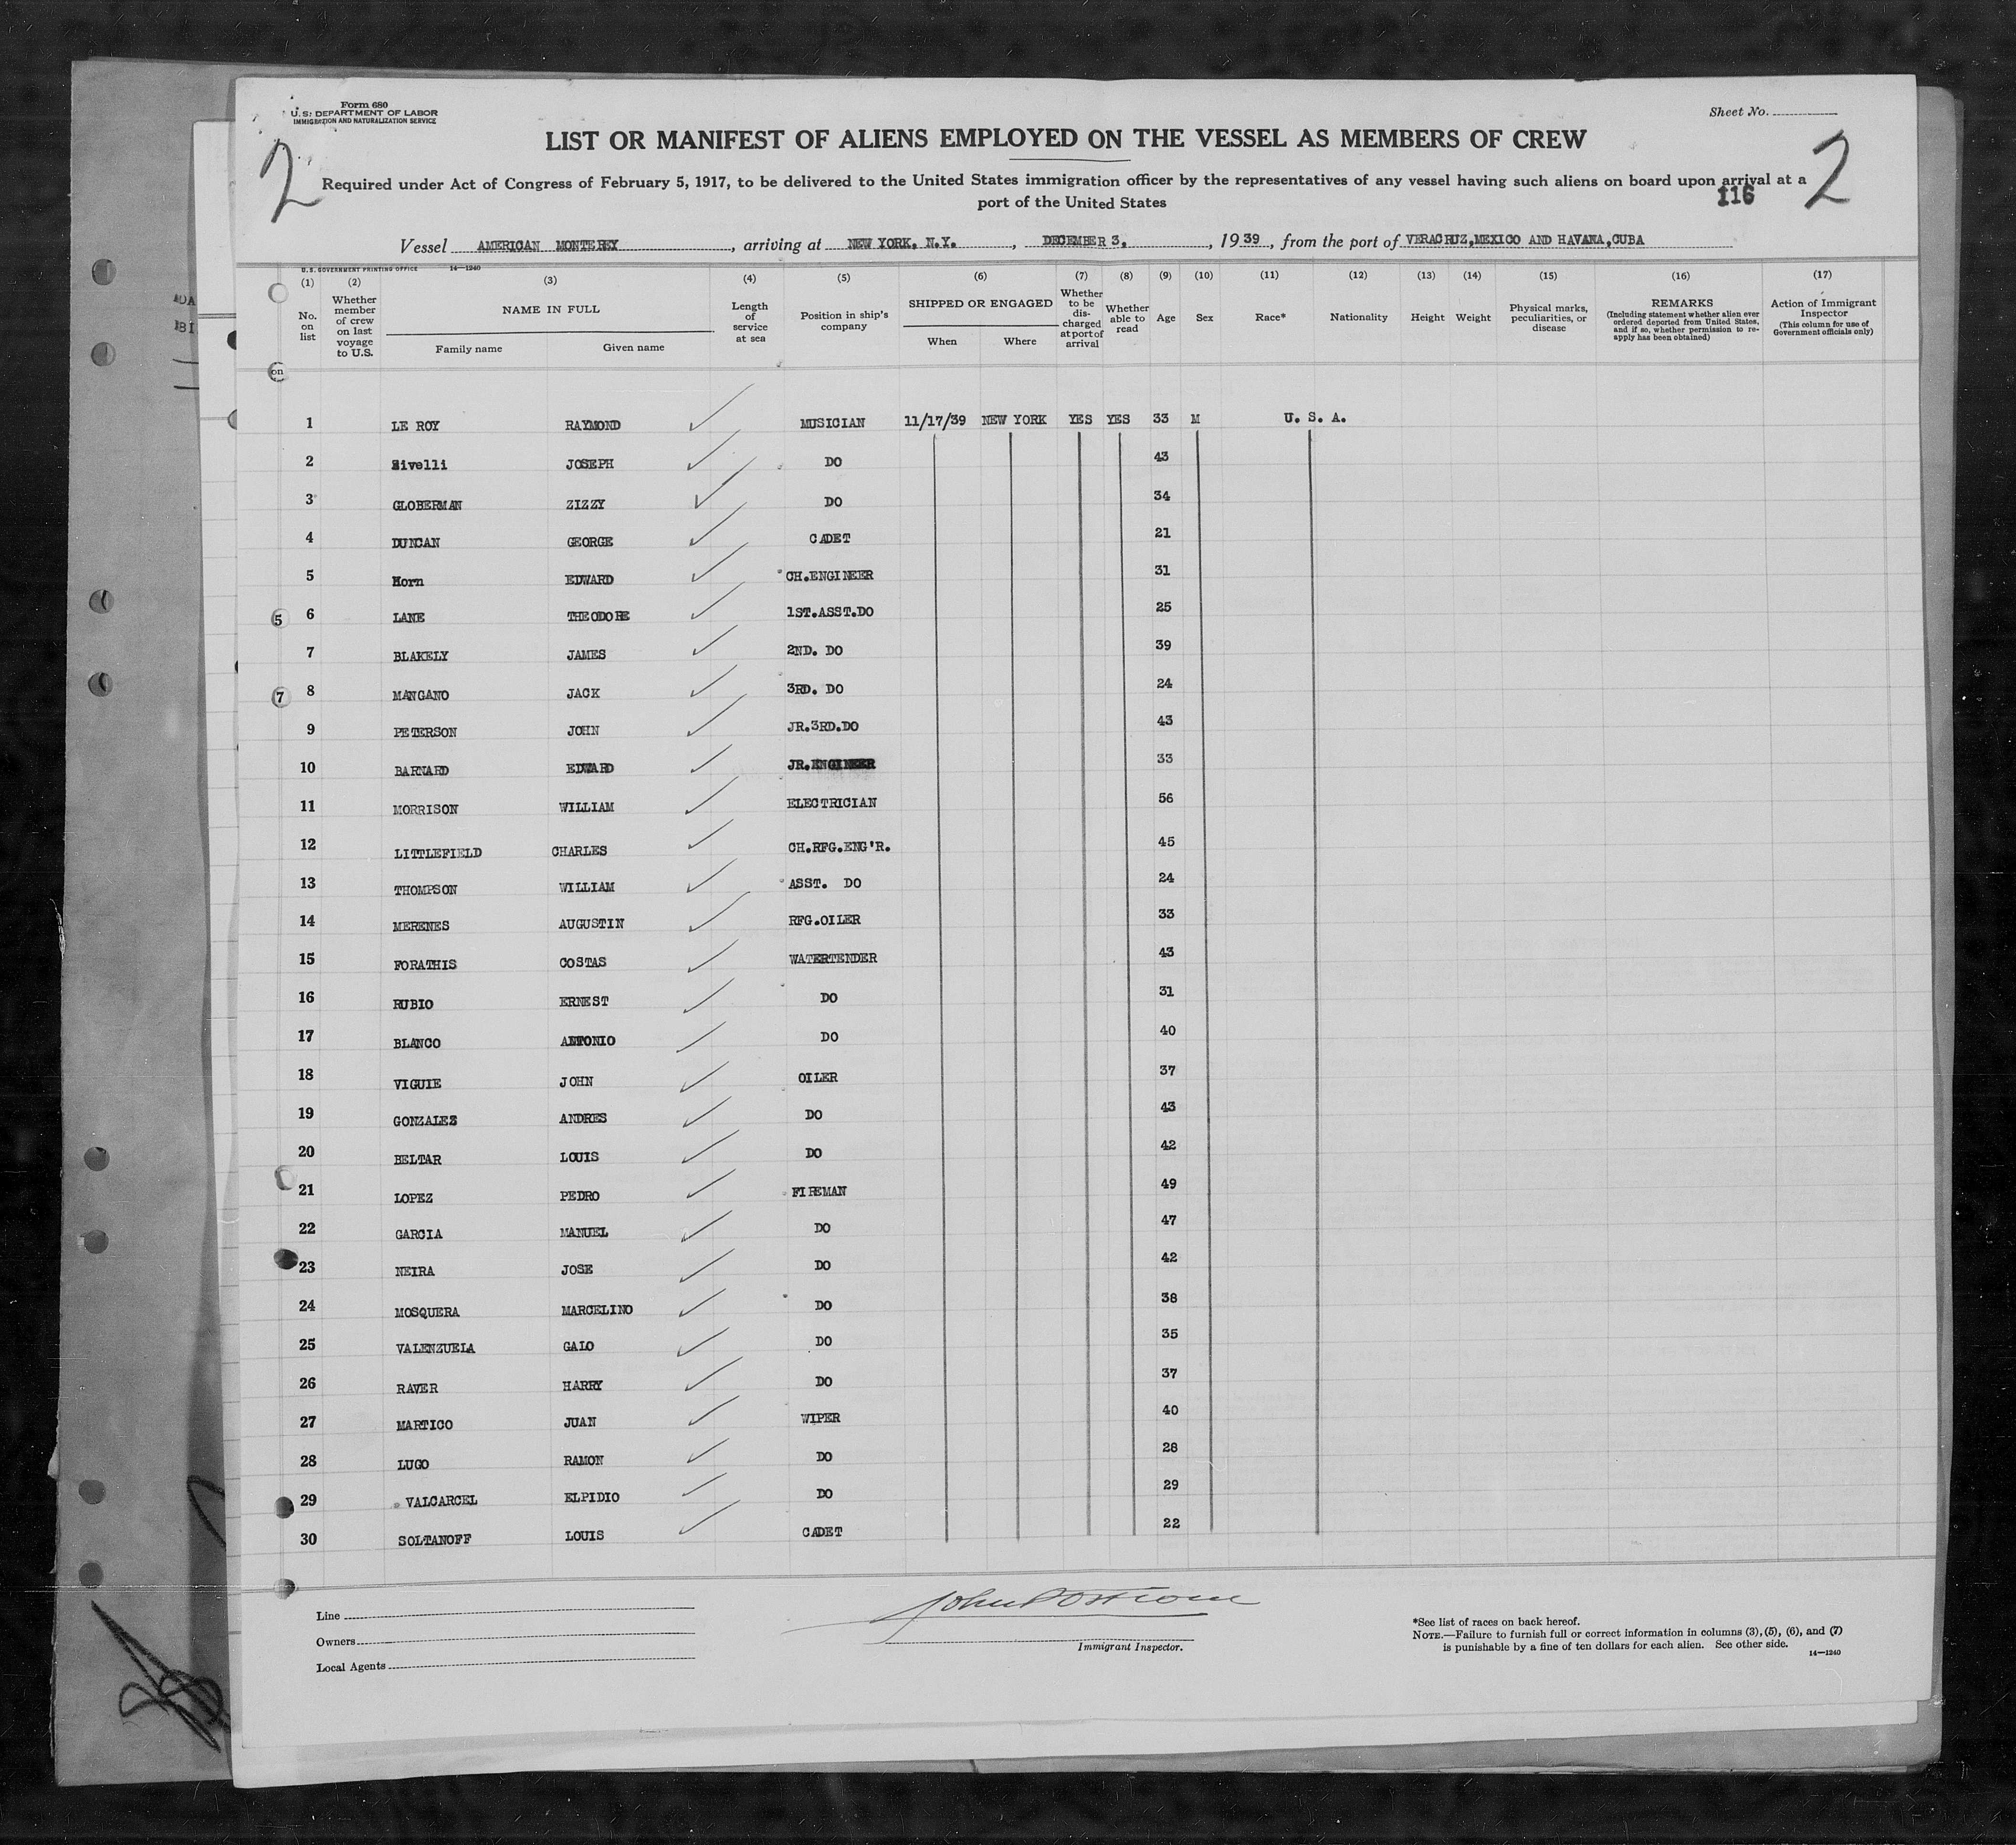 Form 680
U. S. DEPARTMENT OF LABOR
IMMIGRATION AND NATURALIZATION SERVICE
Sheet No.
LIST OR MANIFEST OF ALIENS EMPLOYED ON THE VESSEL AS MEMBERS OF CREW
2 2
Required under Act of Congress of February 5, 1917, to be delivered to the United States immigration officer by the representatives of any vessel having such aliens on board upon arrival at a
port of the United States
116
Vessel AMERICAN MONTEREY, arriving at NEW YORK, N.Y., DECEMBER 3, 1939, from the port of VERACRUZ,MEXICO AND HAVANA,CUBA
U. S. GOVERNMENT PRINTING OFFICE 14—1240
(1) No. on list
(2) Whether member of crew on last voyage to U.S.
(3) NAME IN FULL Family name Given name
(4) Length of service at sea
(5) Position in ship's company
(6) SHIPPED OR ENGAGED When Where
(7) Whether to be discharged at port of arrival
(8) Whether able to read
(9) Age
(10) Sex
(11) Race*
(12) Nationality
(13) Height
(14) Weight
(15) Physical marks, peculiarities, or disease
(16) REMARKS (Including statement whether alien ever ordered deported from United States, and if so, whether permission to reapply has been obtained)
(17) Action of Immigrant Inspector (This column for use of Government officials only)
on
1 LE ROY RAYMOND MUSICIAN 11/17/39 NEW YORK YES YES 33 M U. S. A.
2 Sivelli JOSEPH DO 43
3 GLOBERMAN ZIZZY DO 34
4 DUNCAN GEORGE CADET 21
5 Horn EDWARD CH.ENGINEER 31
5 6 LANE THEODORE 1ST.ASST.DO 25
7 BLAKELY JAMES 2ND. DO 39
7 8 MANGANO JACK 3RD. DO 24
9 PETERSON JOHN JR.3RD.DO 43
10 BARNARD EDWARD JR.ENGINEER 33
11 MORRISON WILLIAM ELECTRICIAN 56
12 LITTLEFIELD CHARLES CH.RFG.ENG'R. 45
13 THOMPSON WILLIAM ASST. DO 24
14 MERENES AUGUSTIN RFG.OILER 33
15 FORATHIS COSTAS WATERTENDER 43
16 RUBIO ERNEST DO 31
17 BLANCO ANTONIO DO 40
18 VIGUIE JOHN OILER 37
19 GONZALEZ ANDRES DO 43
20 BELTAR LOUIS DO 42
21 LOPEZ PEDRO FIREMAN 49
22 GARCIA MANUEL DO 47
23 NEIRA JOSE DO 42
24 MOSQUERA MARCELINO DO 38
25 VALENZUELA GALO DO 35
26 RAVER HARRY DO 37
27 MARTICO JUAN WIPER 40
28 LUGO RAMON DO 28
29 VALCARCEL ELPIDIO DO 29
30 SOLTANOFF LOUIS CADET 22
Line
Owners
Local Agents
Immigrant Inspector.
*See list of races on back hereof.
NOTE.—Failure to furnish full or correct information in columns (3), (5), (6), and (7)
is punishable by a fine of ten dollars for each alien. See other side.
14—1240